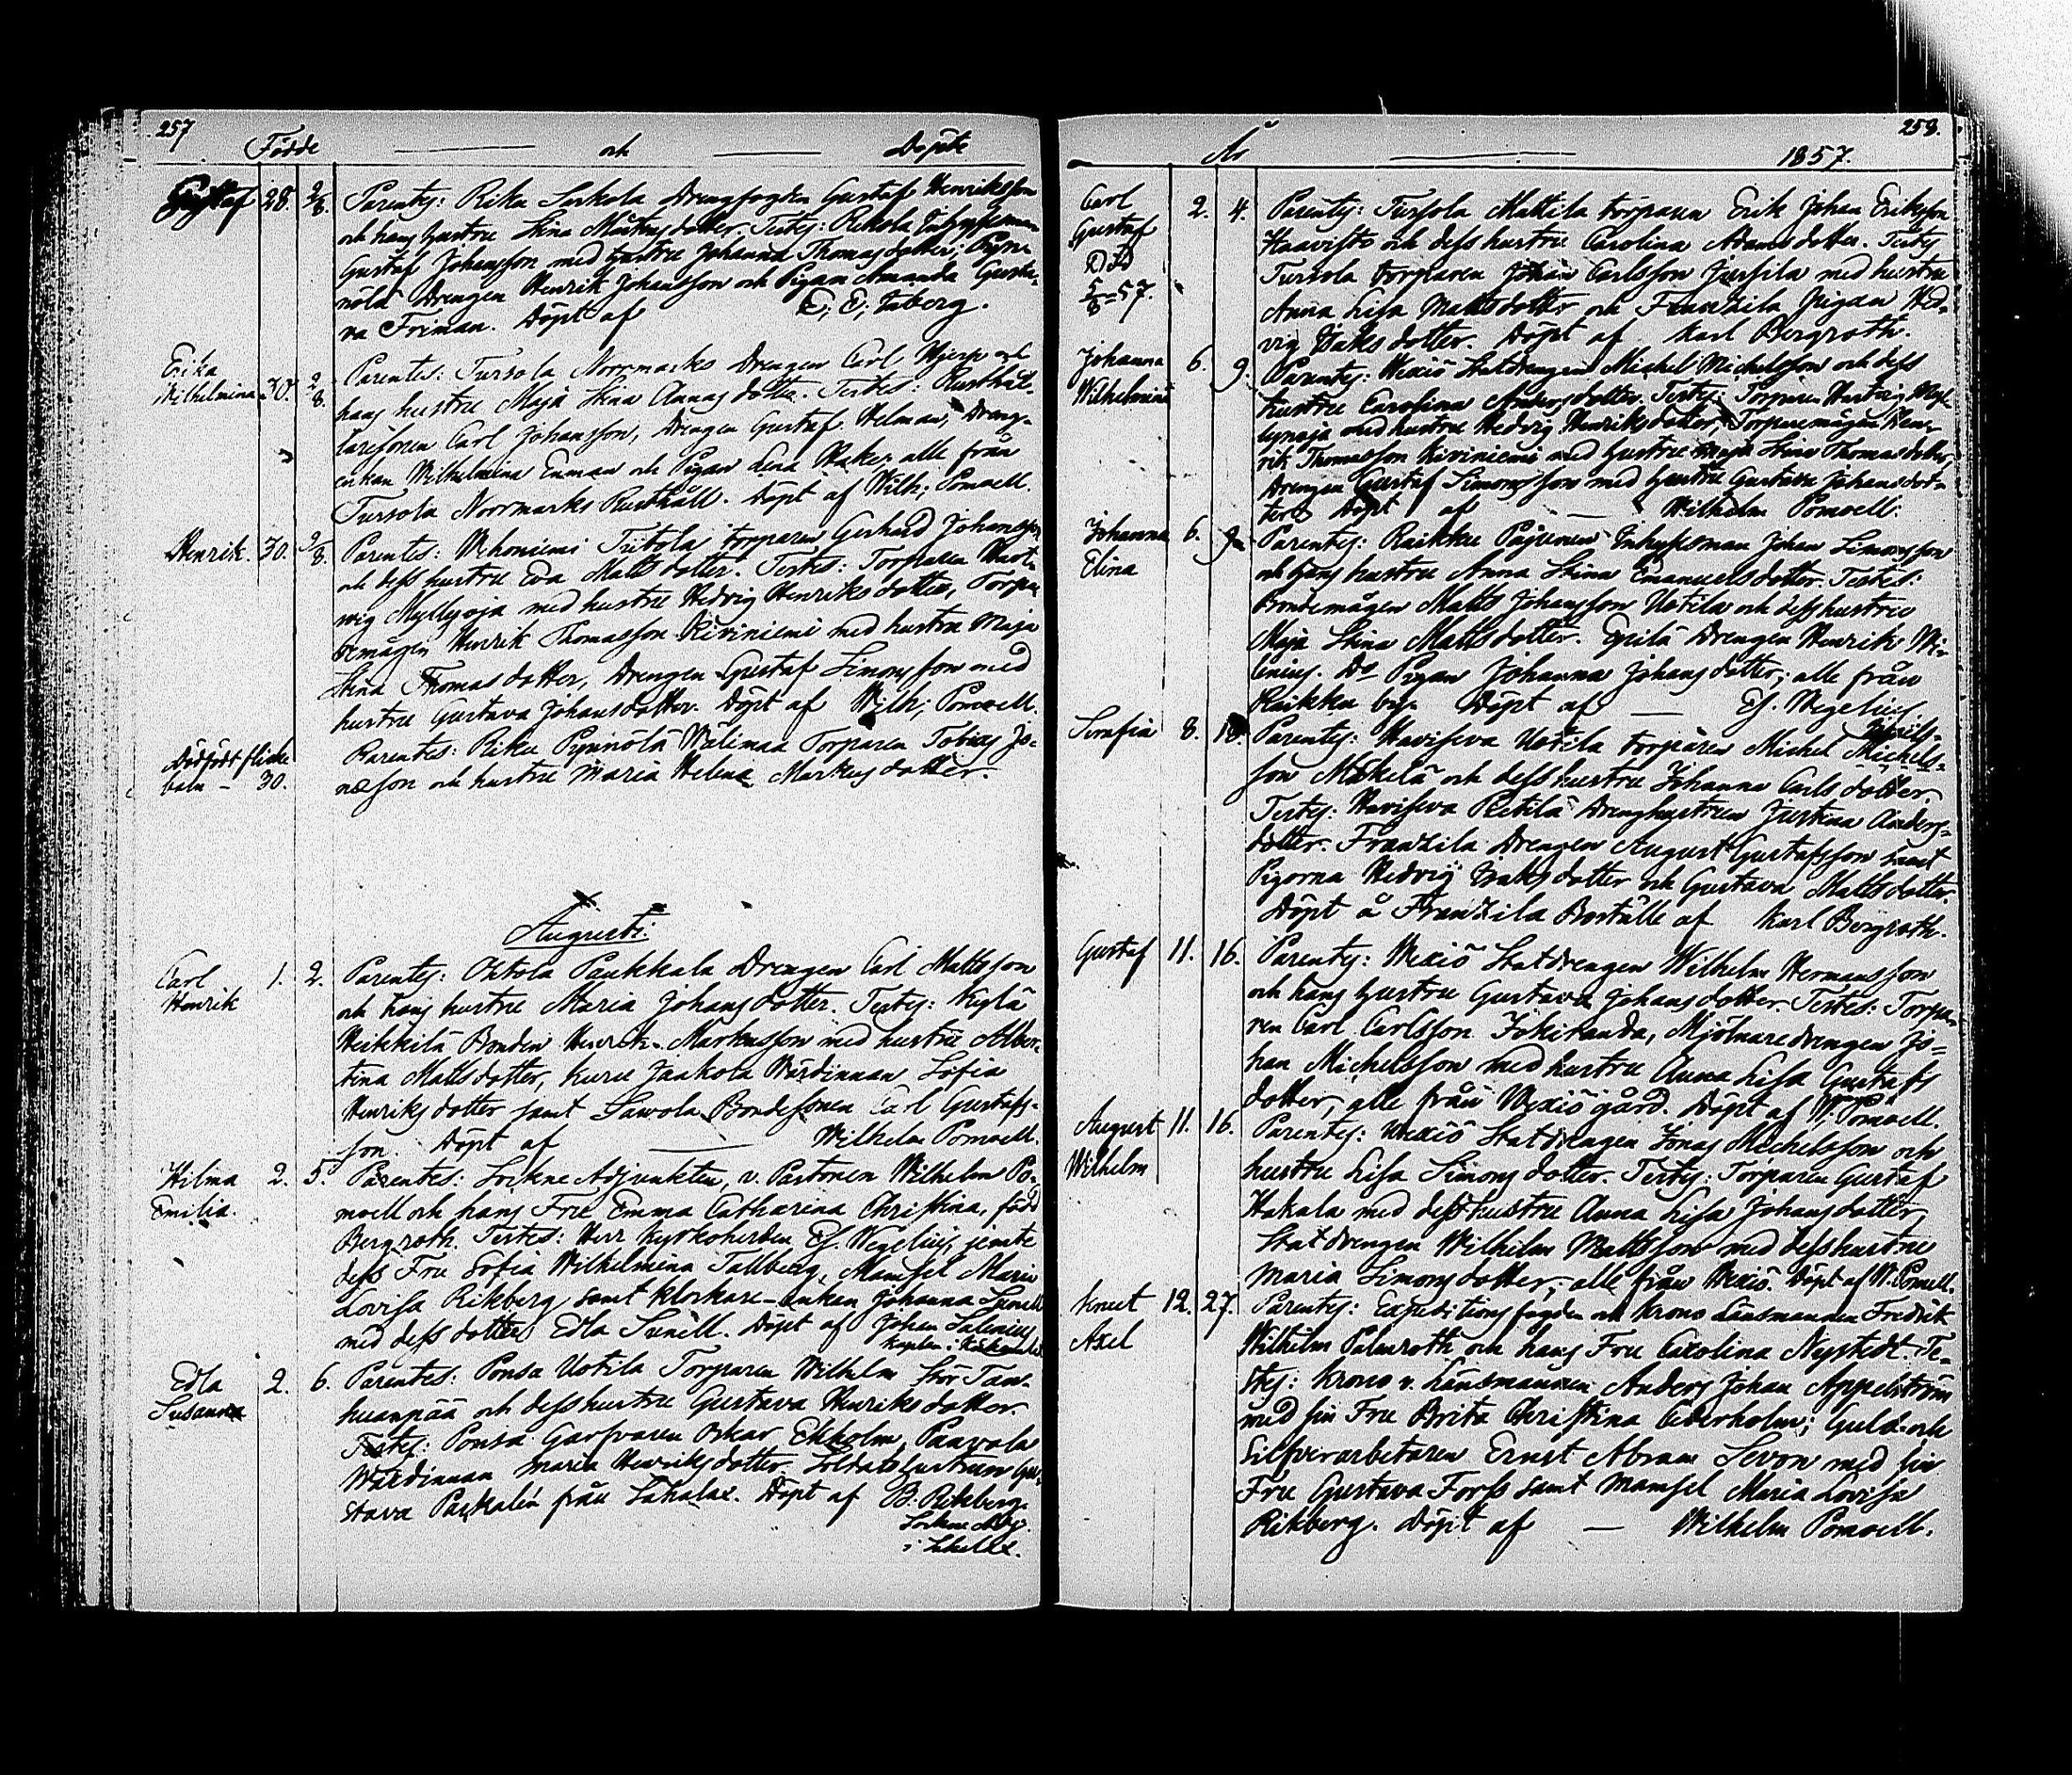 257
Födde — och — Döpte
Gustaf 28. 2/8. Parentes: Riku Drengfogden Gustaf Henriksson
och hans hustru Stina dotter. Testes: Rekola Inhysesman
Gustaf Johansson med hustru Johanna Thomasdotter; Pyn-
nölä Drengen Henrik Johansson och Pigan Amanda Gusta-
va Friman. Döpt af E. E. Taberg.
Erika
Wilhelmina 30. 2/8. Parentes: Tursola Norrmarks Drengen Carl Hjerp och
hans hustru Maja Stina Annasdotter. Testes: Rusthål-
laresonen Carl Johansson, Drengen Gustaf Helman, Dreng-
enkan Wilhelmina Enman och Pigan Lena Hake, alle från
Tursola Norrmarks Rusthåll. Döpt af Wilh: Pomoell.
Henrik. 30. 2/8. Parentes: Wehoniemi Tiitola torparen Gerhard Johansson
och dess hustru Eva Mattsdotter. Testes: Torparen Hart-
wig Myllyoja med hustru Hedvig Henriksdotter, Torpa-
remågen Henrik Thomasson Kiviniemi med hustru Maja
Stina Thomasdotter, Drengen Gustaf Simonsson med
hustru Gustava Johansdotter. Döpt af Wilh: Pomoell.
Dödfödt flicke
barn – 30. Parentes: Riku Pynnölä Wälimaa Torparen Tobias Jo-
nasson och hustru Maria Helena Markusdotter.
Augusti.
Carl
Henrik 1. 2. Parentes: Ohtola Paukkala Drengen Carl Mattsson
och hans hustru Maria Johansdotter. Testes:
Heikkilä Bonden Henrik Markusson med hustru Alber-
tina Mattsdotter, Kuru Jaakola Wärdinnan Sofia
Henriksdotter samt Sawola Bondesonen Carl Gustafs-
son. Döpt af — Wilhelm Pomoell.
Hilma
Emilia. 2. 5. Parentes: Sockne Adjunkten, v. Pastoren Wilhelm Po-
moell och hans Fru Emma Catharina Christina, född
Bergroth. Testes: Herr Kyrkoherden Ef. Wegelius, jemte
dess Fru Sofia Wilhelmina Tallberg, Mamsel Maria
Lovisa Rikberg samt klockare-enkan Johanna Sunell
med dess dotter Edla Sunell. Döpt af Johan Salenius
Kaplan i
Edla
Susanna 2. 6. Parentes: Ponsa Uotila Torparen Wilhelm Stor Tam-
huanpää och dess hustru Gustava Henriksdotter.
Testes: Ponsa Garfvaren Oskar Ekholm, Paavola
Wärdinnan Maria Henriksdotter. Soldatshustrun Gus-
tava från Sahalax. Döpt af B. Rikberg.
Sockne Adj.
i Sahalax.
258.
År — 1857.
Carl
Gustaf
Död
5/8 57. 2. 4. Parentes: Tursola Mattila torparen Erik Johan Eriksson
Haavisto och dess hustru Carolina Adamsdotter. Testes
Tursola torparen Johan Carlsson Jussila med hustru
Anna Lisa Mattsdotter och Franzila Pigan Hed-
vig Isaksdotter. Döpt af Karl Bergroth.
Johanna
Wilhelmina 6. 9. Parentes: Wexiö Statdrengen Michel Michelsson och dess
hustru Carolina Andersdotter. Testes: Torparen Hartvig Myl-
lynoja med hustru Hedvig Henriksdotter, Torparemågen Hen-
rik Thomasson Kiviniemi med hustru Maja Stina Thomasdotter,
Drengen Gustaf Simonsson med hustru Gustava Johansdot-
ter. Döpt af — Wilhelm Pomoell.
Johanna
Elina 6. 9. Parentes: Raikku Pajunen Inhysesman Johan Simonsson
och hans hustru Anna Stina Emanuelsdotter. Testes:
Bondemågen Matts Johansson Uotila och dess hustru
Maja Stina Mattsdotter. Epilä Drengen Henrik We-
lenius. Do Pigan Johanna Johansdotter, alle från
Raikku by. Döpt af — Ef. Wegelius.
Serafia 8. 10. Parentes: Haviseva Uotila torparen Michel Michels-
son Mäkelä och dess hustru Johanna Carlsdotter.
Testes: Haviseva Pietilä Drenghustrun Justina Anders-
dotter. Franzila Drengen August Gustafsson samt
Pigorna Hedvig Isaksdotter och Gustava Mattsdotter.
Döpt å Franzila Boställe af Karl Bergroth.
Gustaf 11. 16. Parentes: Wexiö Statdrengen Wilhelm Hermansson
och hans hustru Gustava Johansdotter. Testes: Torpa-
ren Carl Carlsson Jokiranda, Mjölnaredrengen Jo-
han Michelsson med hustru Anna Lisa Gustafs
dotter, alle från Wexiö gård. Döpt af W. Pomoell.
August
Wilhelm 11. 16. Parentes: Wexiö Statdrengen Jonas Michelsson och
hustru Lisa Simonsdotter. Testes: Torparen Gustaf
Hakala med dess hustru Anna Lisa Johansdotter,
Statdrengen Wilhelm Mattsson med dess hustru
Maria Simonsdotter, alle från Wexiö. Döpt af W. Pomoell.
Knut
Axel 12. 27. Parentes: Expeditionsfogden och Krono Länsmannen Fredrik
Wilhelm Palmroth och hans Fru Carolina Nystedt. Te-
stes: Krono v. Länsmannen Anders Johan Appelström
med sin Fru Brita Christina Cederholm; Guld- och
Silfverarbetaren Ernst Abram Sevon med sin
Fru Gustava Forss samt Mamsel Maria Lovisa
Rikberg. Döpt af — Wilhelm Pomoell.